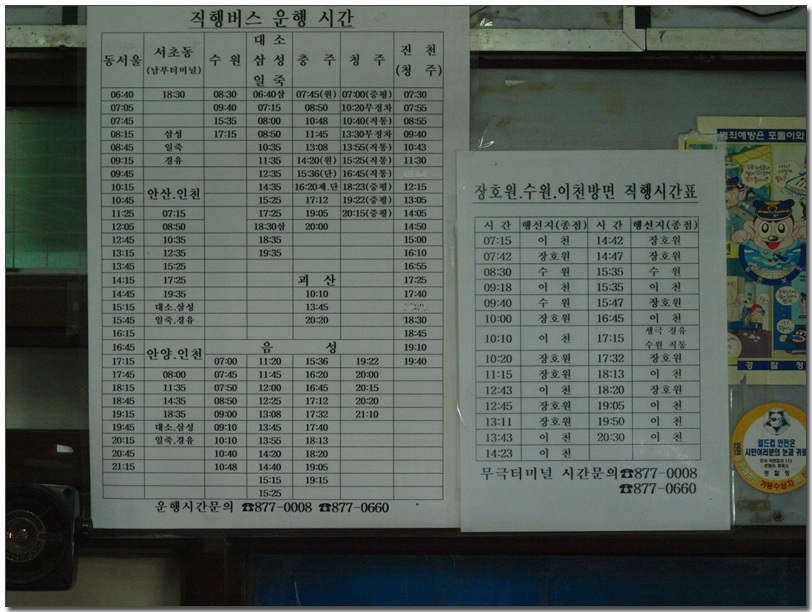 직행버스 운행 시간
동서울 서초동 (남부터미널) 수 원 대 소 삼 성 일 죽 충 주 청 주 진 천 (청 주)
06:40 18:30 08:30 06:40삼 07:45(원) 07:00(증평) 07:30
07:05 09:40 07:15 08:50 10:20무정차 07:55
07:45 15:35 08:00 10:48 10:40(직통) 08:55
08:15 삼성 17:15 08:50 11:45 13:30무정차 09:40
08:45 일죽 10:35 13:08 13:55(직통) 10:43
09:15 경유 11:35 14:20(원) 15:25(직통) 11:30
09:45 12:35 15:36(단) 16:45(직통)
10:15 안산.인천 14:35 16:20제.단 18:23(증평) 12:15
10:45 15:25 17:12 19:22(증평) 13:05
11:25 07:15 17:25 19:05 20:15(증평) 14:05
12:05 08:50 18:30삼 20:00 14:50
12:45 10:35 18:35 15:00
13:15 12:35 19:35 16:10
13:45 15:25 16:55
14:15 17:25 괴 산 17:25
14:45 19:35 10:10 17:40
15:15 대소.삼성 13:45
15:45 일죽.경유 20:20 18:30
16:15 18:45
16:45 안양.인천 음 성 19:10
17:15 07:00 11:20 15:36 19:22 19:40
17:45 08:00 07:45 11:45 16:20 20:00
18:15 11:35 07:50 12:00 16:45 20:15
18:45 14:35 08:50 12:25 17:12 20:20
19:15 18:35 09:00 13:08 17:32 21:10
19:45 대소.삼성 09:10 13:45 17:40
20:15 일죽.경유 10:10 13:55 18:13
20:45 10:40 14:20 18:20
21:15 10:48 14:40 19:05
15:15 19:15
15:25
운행시간문의 ☎877-0008 ☎877-0660
장호원.수원.이천방면 직행시간표
시 간 행선지(종점) 시 간 행선지(종점)
07:15 이 천 14:42 장호원
07:42 장호원 14:47 장호원
08:30 수 원 15:35 수 원
09:18 이 천 15:35 이 천
09:40 수 원 15:47 장호원
10:00 장호원 16:45 이 천
10:10 이 천 17:15 생극 경유 수원 직통
10:20 장호원 17:32 장호원
11:15 장호원 18:13 이 천
12:43 이 천 18:20 장호원
12:45 장호원 19:05 이 천
13:11 장호원 19:50 이 천
13:43 이 천 20:30 이 천
14:23 이 천
무극터미널 시간문의☎877-0008
☎877-0660
범죄예방은 포돌이와
경 찰 청
월드컵 안전은
시민여러분의 눈과 귀로
경 찰 청